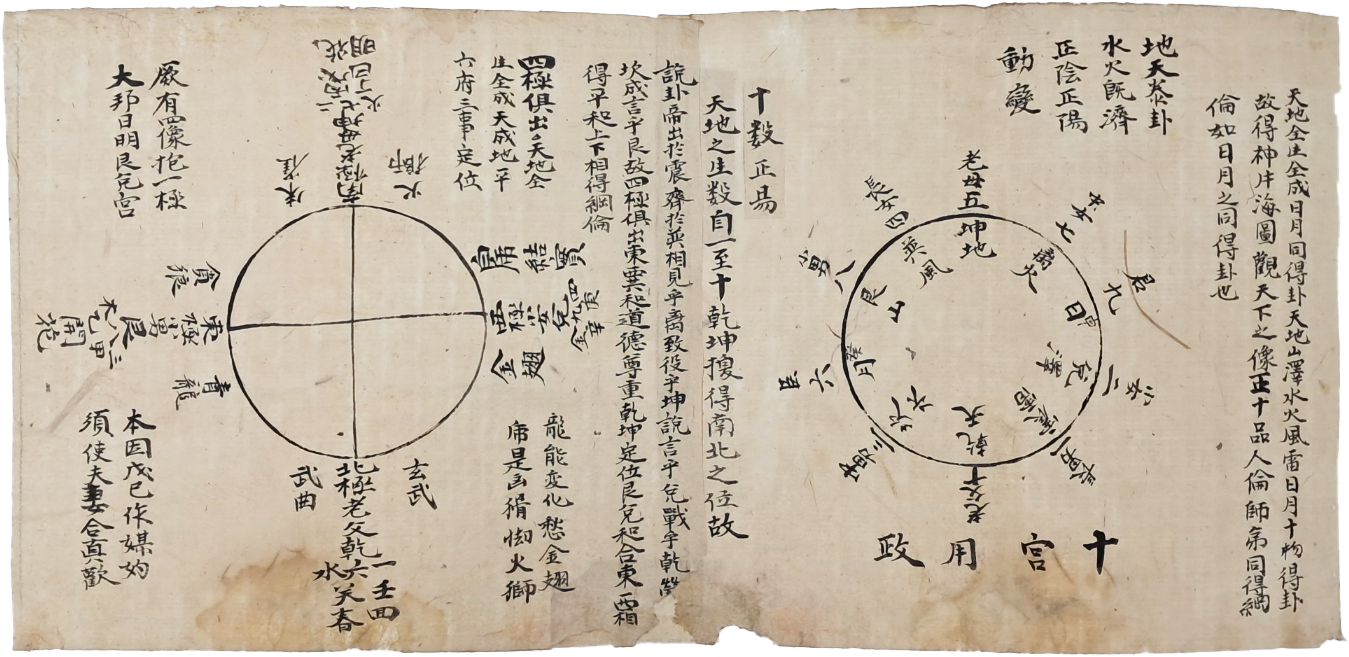 天地全生全成日月同得卦天地山澤水火風雷日月十物得卦
故得神片海圖觀天下之像正十品人倫師弟同得綱
倫如日月之同得卦也
地天泰卦
水火既濟
正陰正陽
動變
老母五
坤地
中女七
火
君九
日
少女二
兌澤
長男一
震雷
老父十
乾天
中男三
坎水
臣六
月
少男八
艮山
長女四
巽風
十宮用政
十數正易
天地之生數自一至十乾坤摠得南北之位故
說卦帝出於震齊於巽相見乎離致役乎坤說言乎兌戰乎乾勞
坎成言乎艮故四極俱出東 和道德尊重乾坤定位艮兌和合東西相
得平和上下相得綱倫
四極俱出天地全
生全成天成地平
六府三事定位
火獅
南極老母坤
二七
火
朱雀
結實
西極少女兌
四九庚
金
金翅
龍能変化愁金翅
是 猾 火獅
玄武
北極老父乾
一六壬
水
笑春
武曲
貪狼
東極少男艮
三八甲
木
開花
青龍
厥有四像抱一極
大邦日明艮兌宮
本因戊己作媒妁
須使夫妻合眞歡